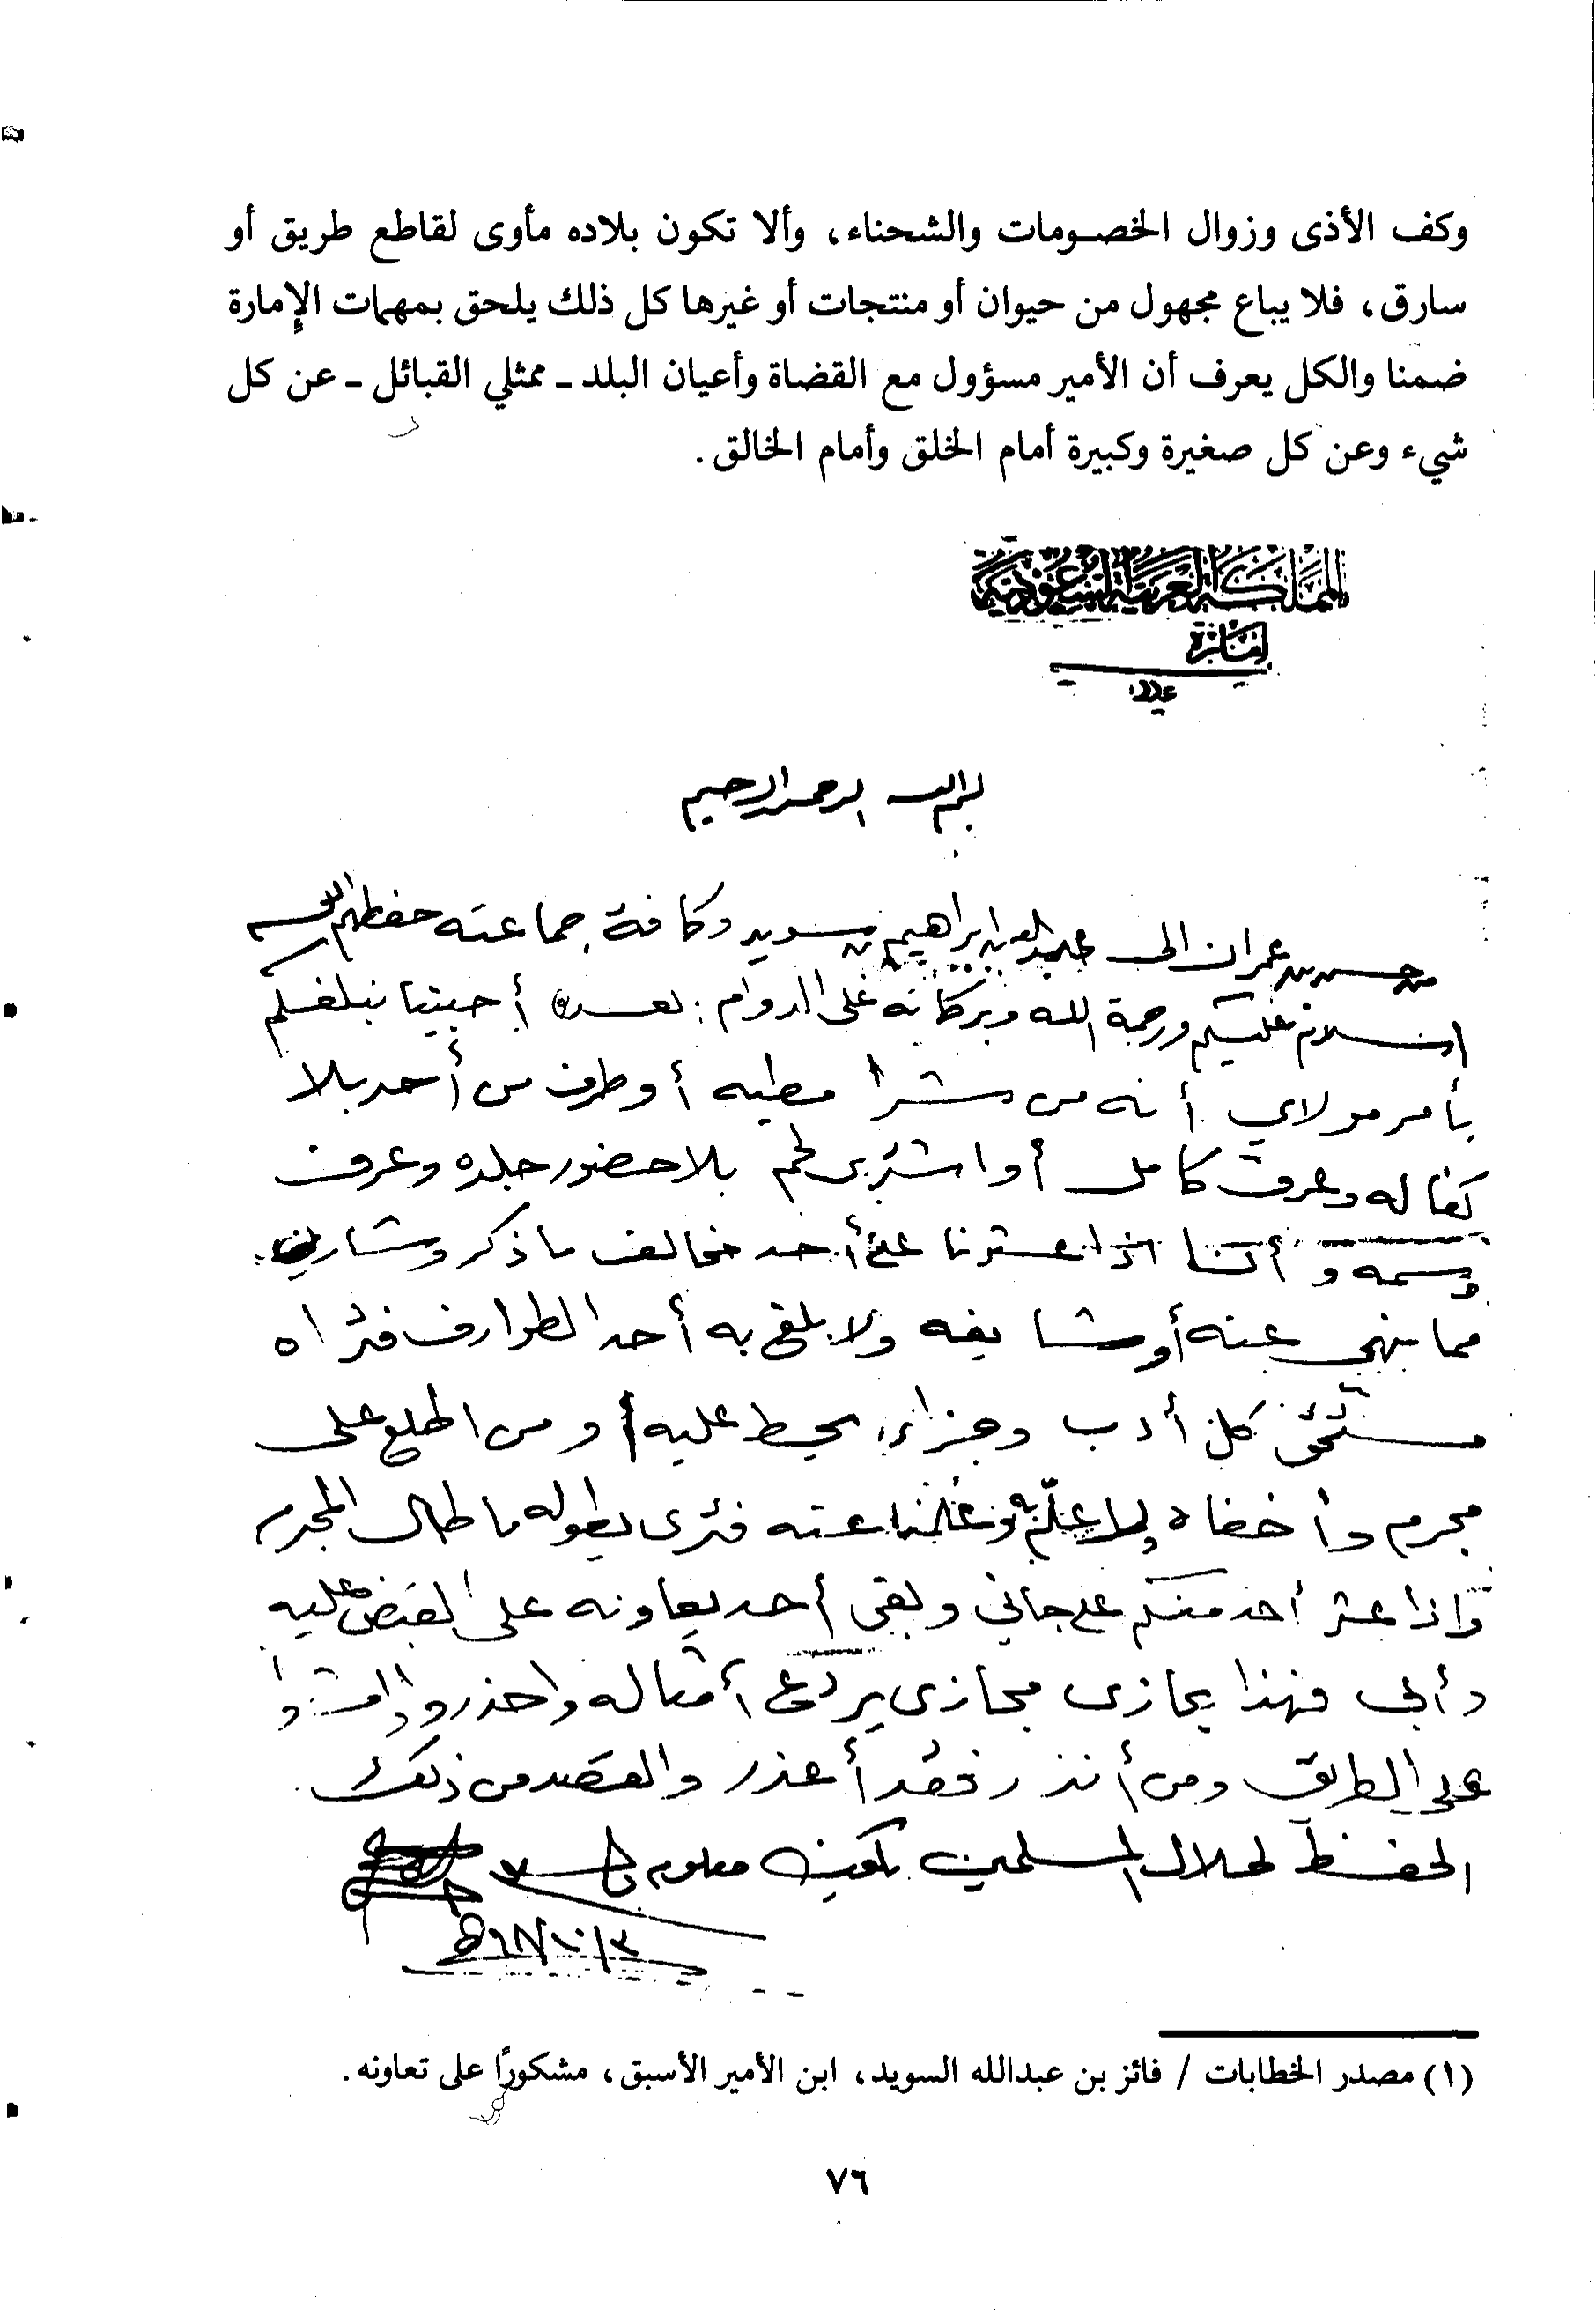 وكف الأذى وزوال الخصومات والشحناء، وألا تكون بلاده مأوى لقاطع طريق أو
سارق، فلا يباع مجهول من حيوان أو منتجات أو غيرها كل ذلك يلحق بمهمات الإمارة
ضمنا والكل يعرف أن الأمير مسؤول مع القضاة وأعيان البلد ـ ممثلي القبائل ـ عن كل
شيء وعن كل صغيرة وكبيرة أمام الخلق وأمام الخالق.
المملكة العربية السعودية
إمارة
عدد
بسم الله الرحمن الرحيم
من حسن بن عمران الى عبدالله بن ابراهيم بن سويد وكافة جماعته حفظهم الله
السلام عليكم ورحمة الله وبركاته على الدوام: بعده أحبيبنا نبلغكم
بأمر مولاي أنه من شرا مطيه أو طرف من أحد بلا
كفاله وعرف كامل أو اشترى لحم بلا حضور جلده وعرف
وسمه و أننا اذا عثرنا على أحد خالف ما ذكر وشارف
مما ينهى عنه أو شايفه ولا بلغ به أحد الطوارف فنراه
مستحق كل أدب وجزاء يحط عليه أو من اطلع على
مجرم وأخفاه عنه فنرى يطوله ما طال المجرم
واذا عثر أحد منكم على جاني وبغى أحد يعاونه على القبض عليه
وأبى فهذا يجازى مجازى يردع أمثاله واحذروا وامشوا
على الطريق ومن أنذر فقد أعذر والقصد من ذلك
الحفظ لحلال المسلمين يكون معلوم
(١) مصدر الخطابات / فائز بن عبدالله السويد، ابن الأمير الأسبق، مشكورًا على تعاونه.
٧٦